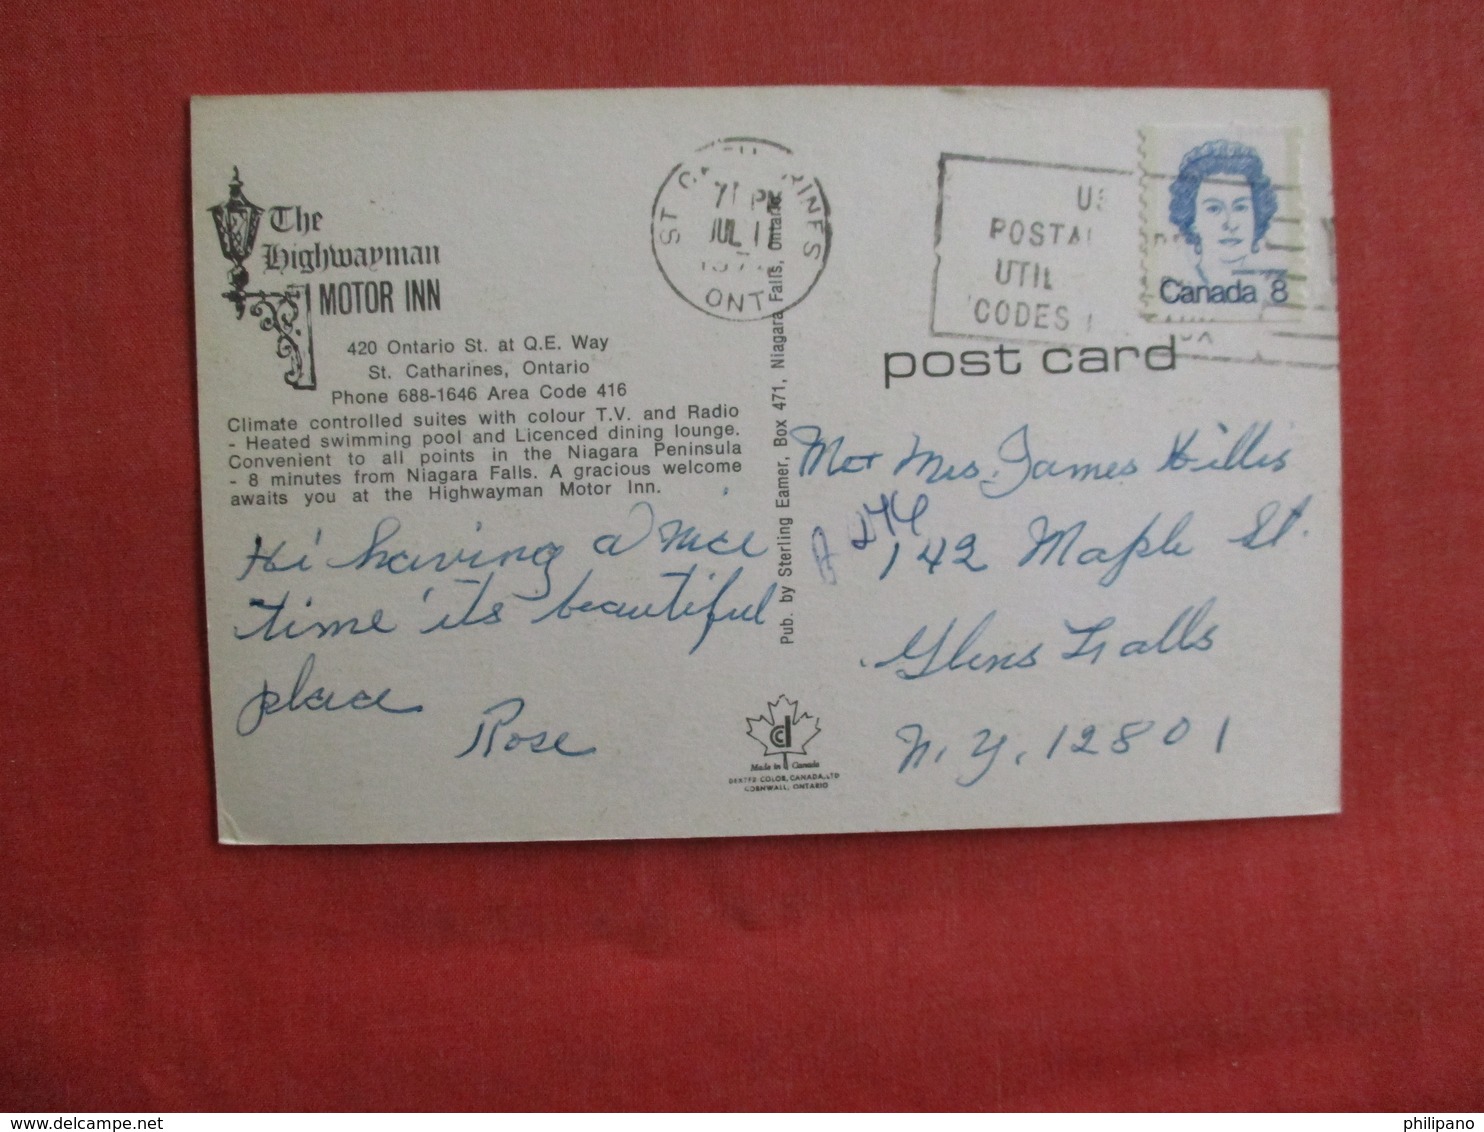 The
Highwayman
MOTOR INN
420 Ontario St. at Q.E. Way
St. Catharines, Ontario
Phone 688-1646 Area Code 416
Climate controlled suites with colour T.V. and Radio
- Heated swimming pool and Licenced dining lounge.
Convenient to all points in the Niagara Peninsula
- 8 minutes from Niagara Falls. A gracious welcome
awaits you at the Highwayman Motor Inn.
Hi having a nice
time its beautiful
place
Rose
Pub. by Sterling Eamer, Box 471, Niagara Falls, Ontario
PM
JUL
ONT
POSTAL
UTIL
CODES
Canada 8
post card
Mr + Mrs. James Hillis
142 Maple St.
Glens Falls
N.Y. 12801
Made in Canada
DEXTER COLOR, CANADA, LTD
CORNWALL, ONTARIO
philipano